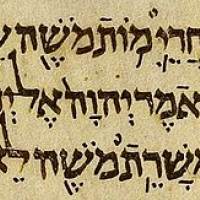 חֲרֵי מוֹת מֹשֶׁה
אמֶר יְהוָה אֶל
מְשָׁרֵת מֹשֶׁה לֵא